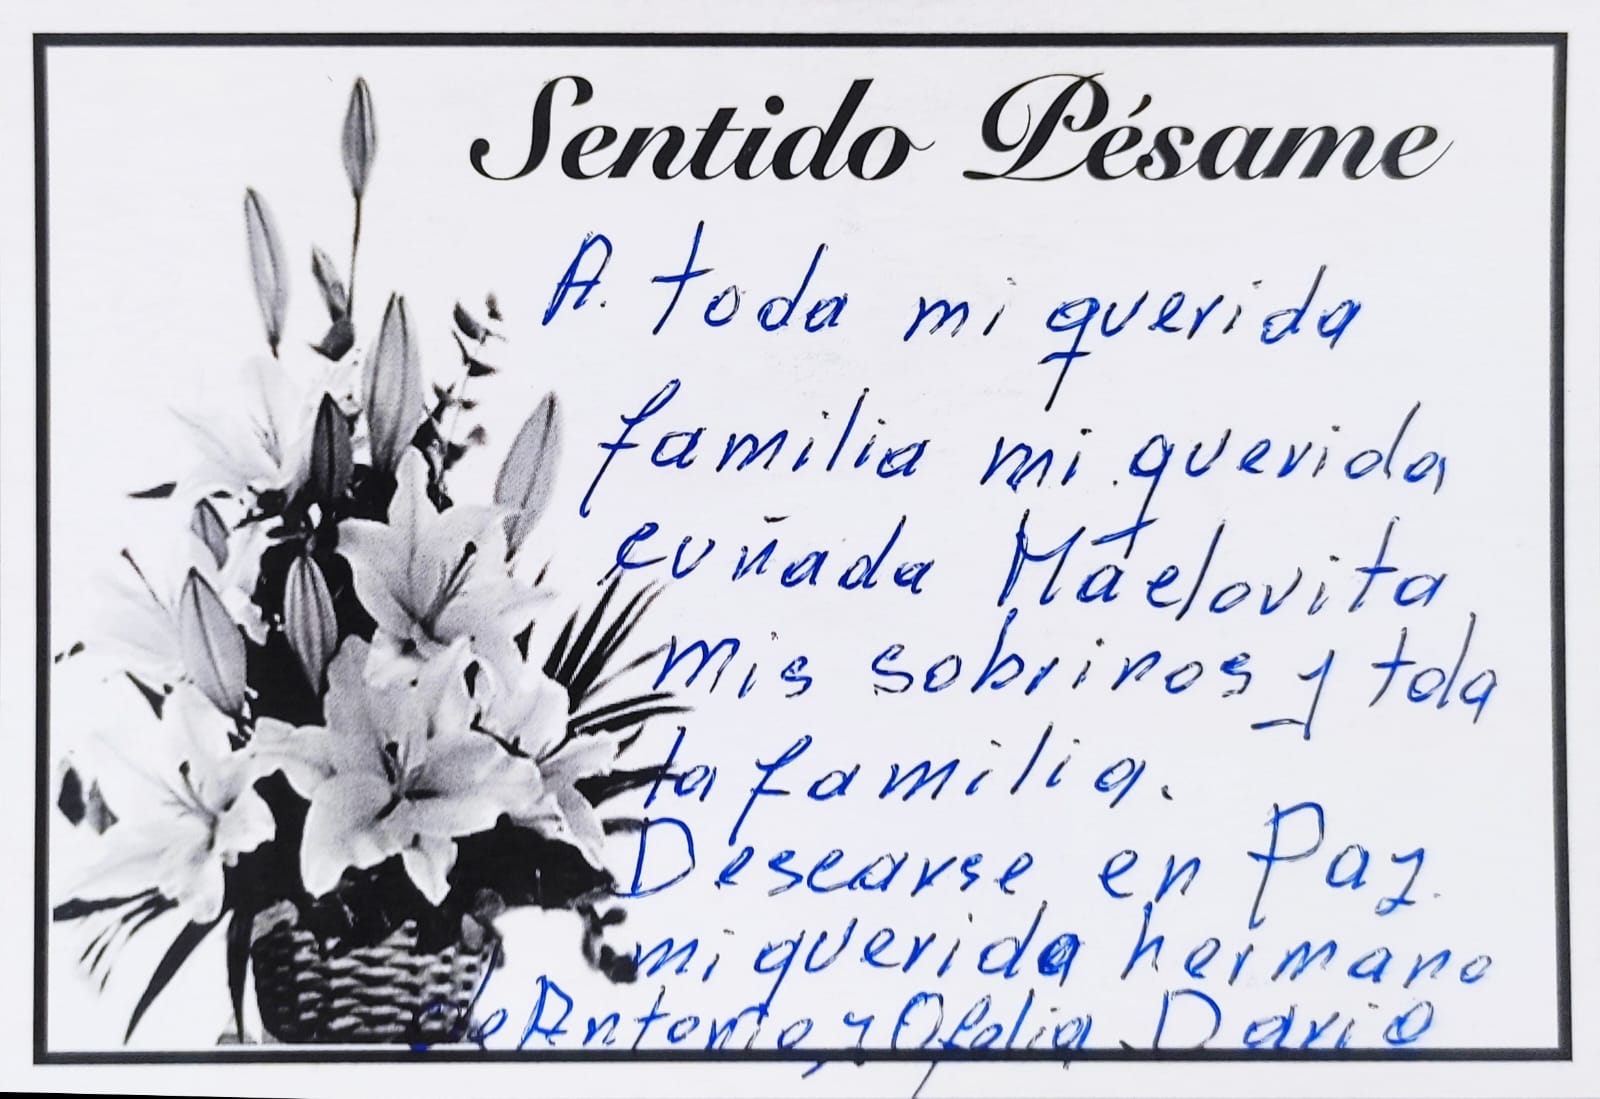 Sentido Pésame
A. toda mi querida
familia mi querida
cuñada Maelovita
mis sobrinos y toda
la familia.
Descarse en Paz.
mi querida hermano
de Antonio y Ofelia Dario